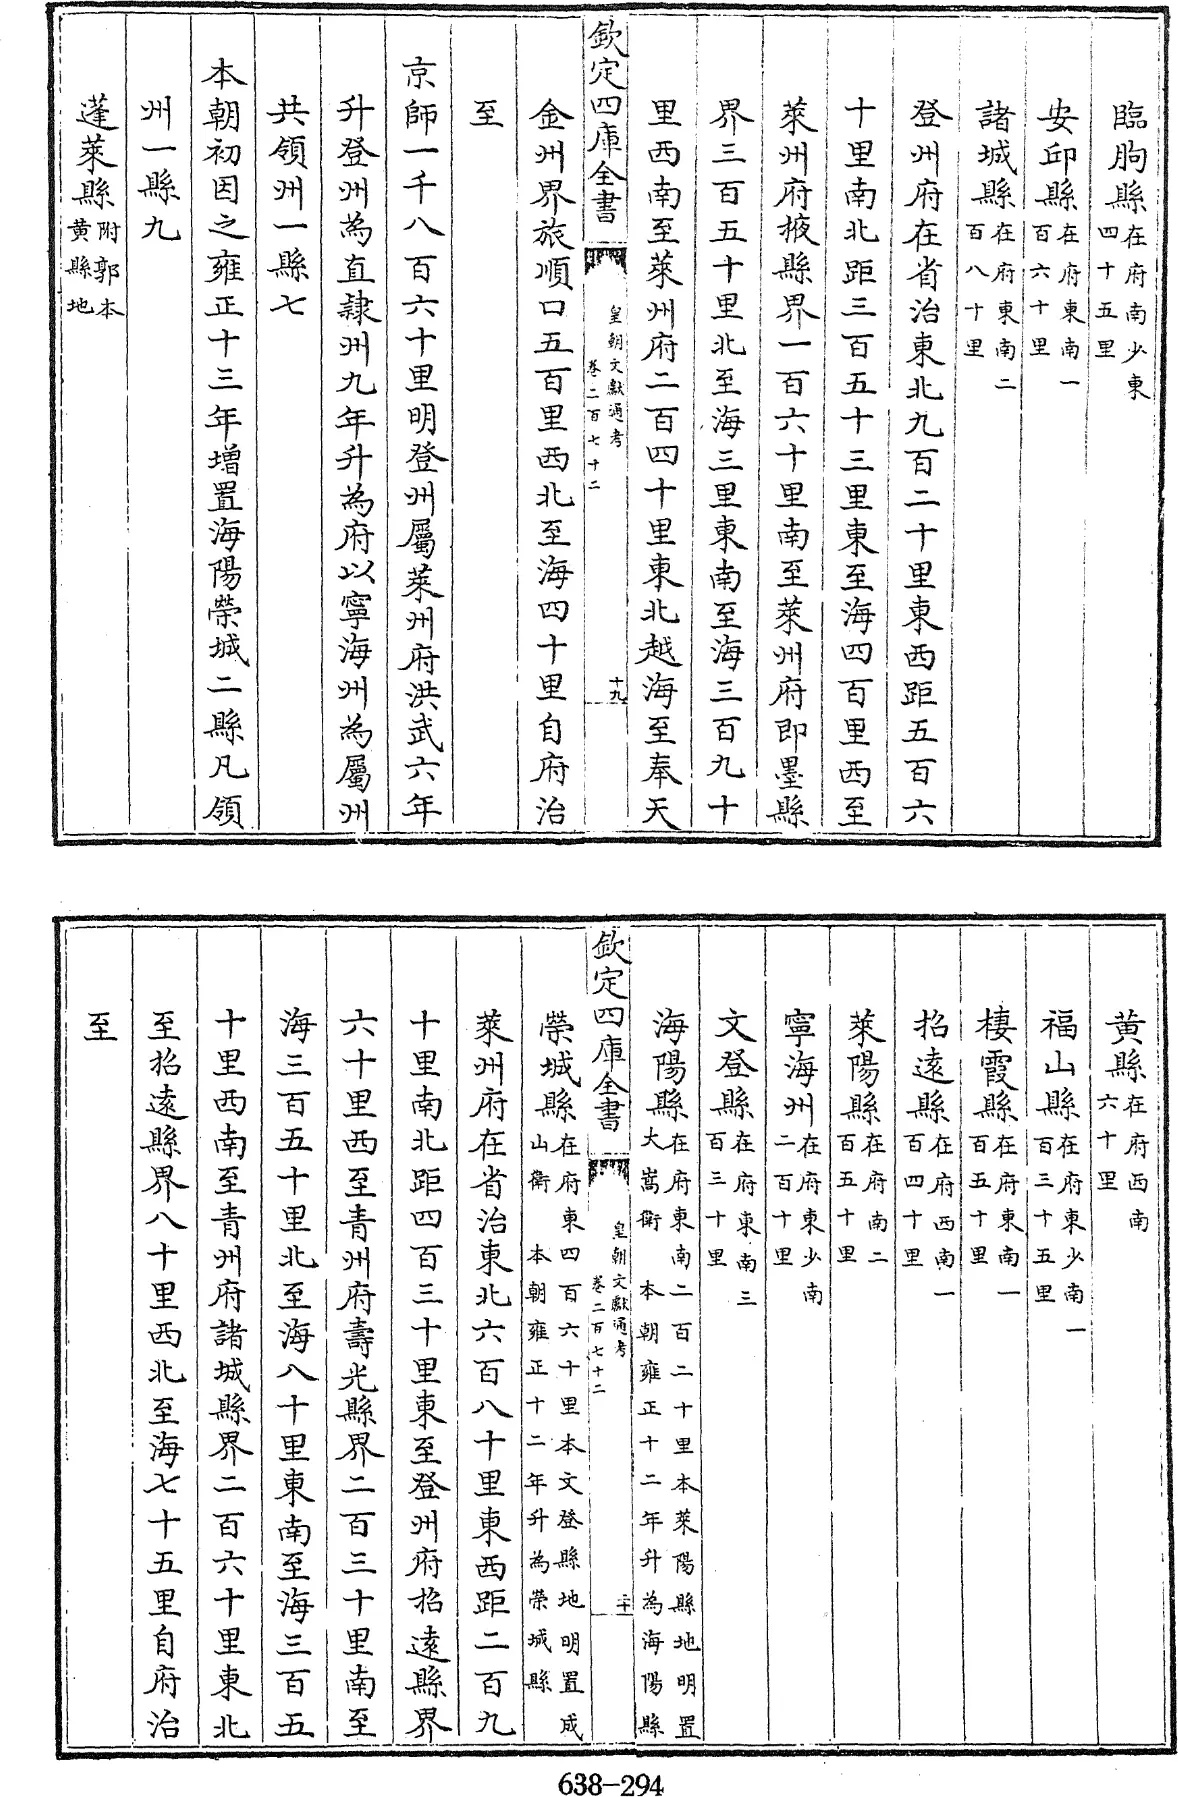 臨朐縣在府南少東四十五里
安邱縣在府東南一百六十里
諸城縣在府東南二百八十里
登州府在省治東北九百二十里東西距五百六
十里南北距三百五十三里東至海四百里西至
萊州府掖縣界一百六十里南至萊州府即墨縣
界三百五十里北至海三里東南至海三百九十
里西南至萊州府二百四十里東北越海至奉天
欽定四庫全書
皇朝文獻通考
卷二百七十二
十九
金州界旅順口五百里西北至海四十里自府治
至
京師一千八百六十里明登州屬萊州府洪武六年
升登州為直隷州九年升為府以寧海州為屬州
共領州一縣七
本朝初因之雍正十三年增置海陽榮城二縣凡領
州一縣九
蓬萊縣附郭本黃縣地
黃縣在府西南六十里
福山縣在府東少南一百三十五里
棲霞縣在府東南一百五十里
招遠縣在府西南一百四十里
萊陽縣在府南二百五十里
寧海州在府東少南二百十里
文登縣在府東南三百三十里
海陽縣在府東南二百二十里本萊陽縣地明置大嵩衛 本朝雍正十二年升為海陽縣
欽定四庫全書
皇朝文獻通考
卷二百七十二
二十
榮城縣在府東四百六十里本文登縣地明置成山衛 本朝雍正十二年升為榮城縣
萊州府在省治東北六百八十里東西距二百九
十里南北距四百三十里東至登州府招遠縣界
六十里西至青州府壽光縣界二百三十里南至
海三百五十里北至海八十里東南至海三百五
十里西南至青州府諸城縣界二百六十里東北
至招遠縣界八十里西北至海七十五里自府治
至
638-294